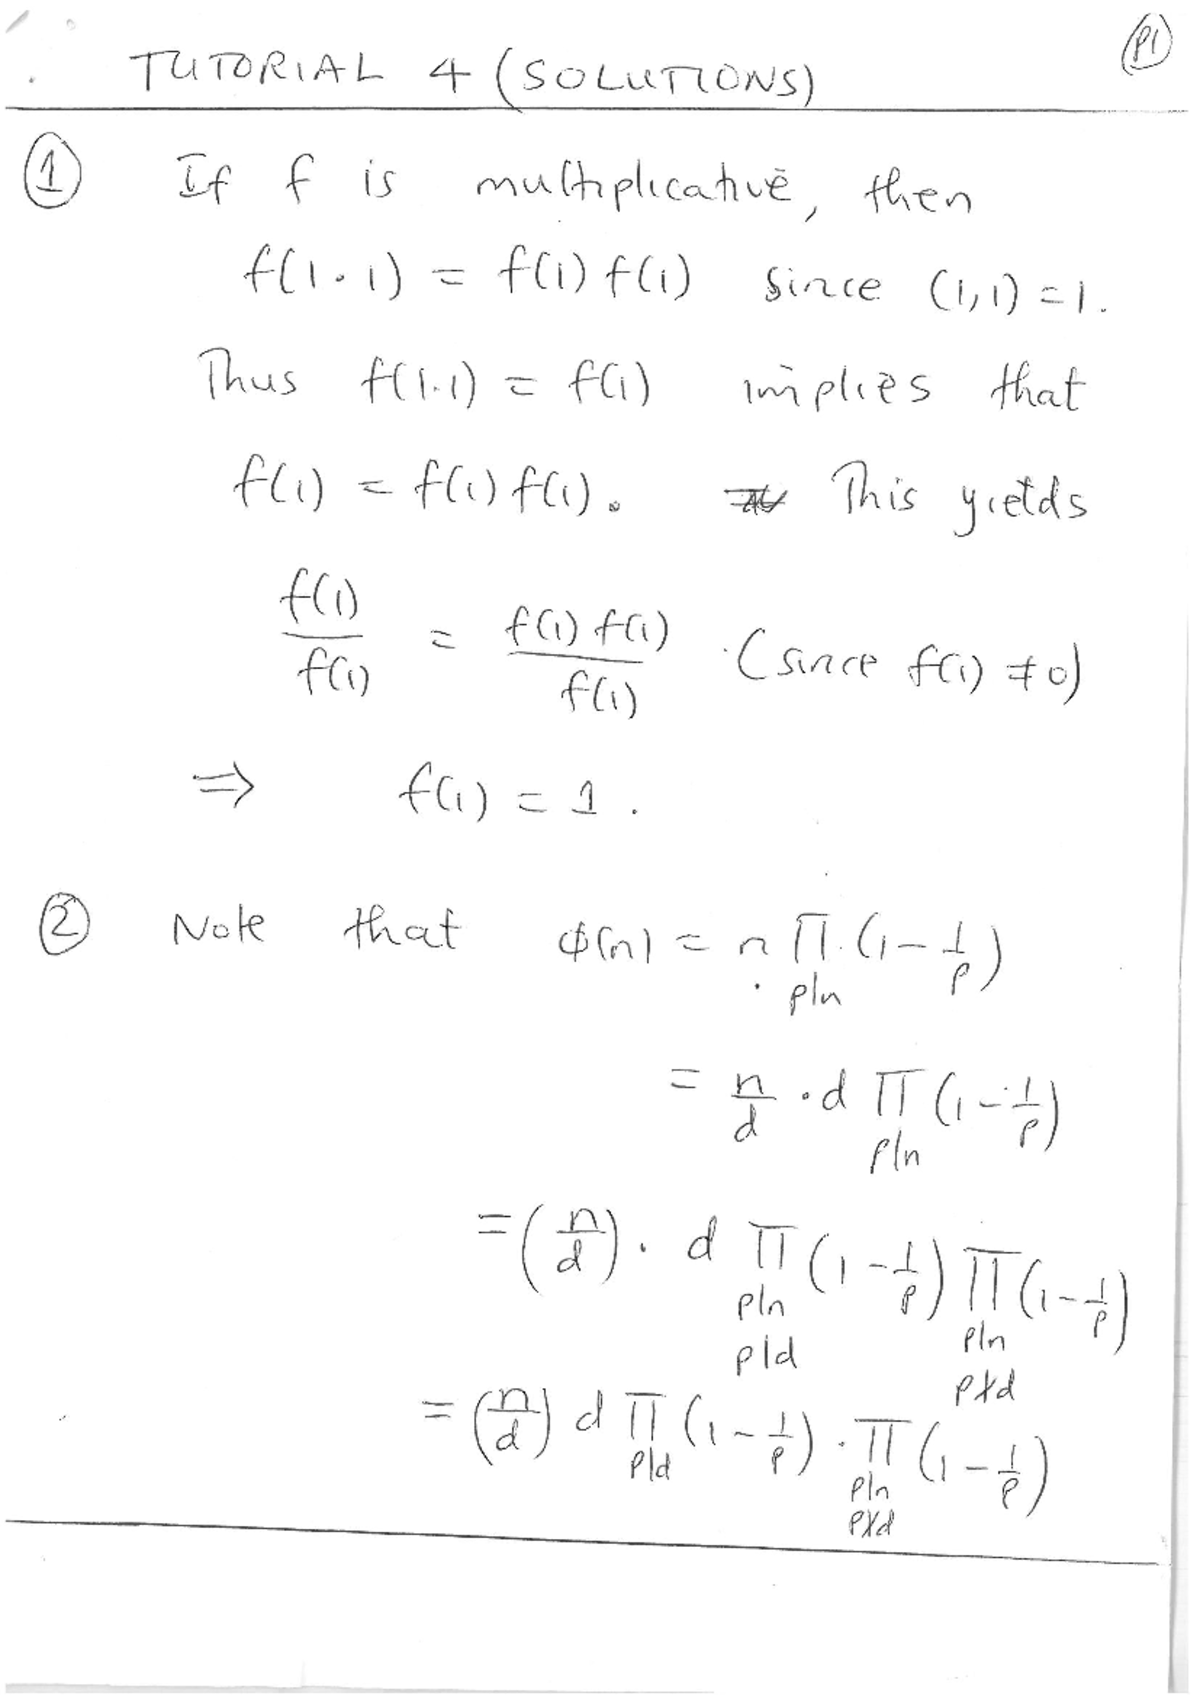 P1
TUTORIAL 4 (SOLUTIONS)
① If f is multiplicative, then
f(1·1) = f(1) f(1) since (1,1) = 1.
Thus f(1·1) = f(1) implies that
f(1) = f(1) f(1). This yields
f(1)/f(1) = f(1) f(1)/f(1) (since f(1) ≠ 0)
⇒ f(1) = 1.
② Note that ϕ(n) = n ∏_{p|n} (1 - 1/p)
= n/d · d ∏_{p|n} (1 - 1/p)
= (n/d) · d ∏_{p|n, p|d} (1 - 1/p) ∏_{p|n, p∤d} (1 - 1/p)
= (n/d) d ∏_{p|d} (1 - 1/p) · ∏_{p|n, p∤d} (1 - 1/p)